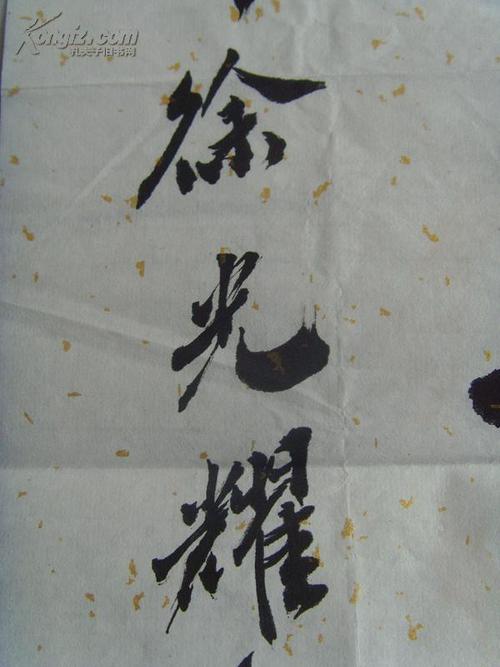 Kongfz.com
孔夫子旧书网
徐光耀